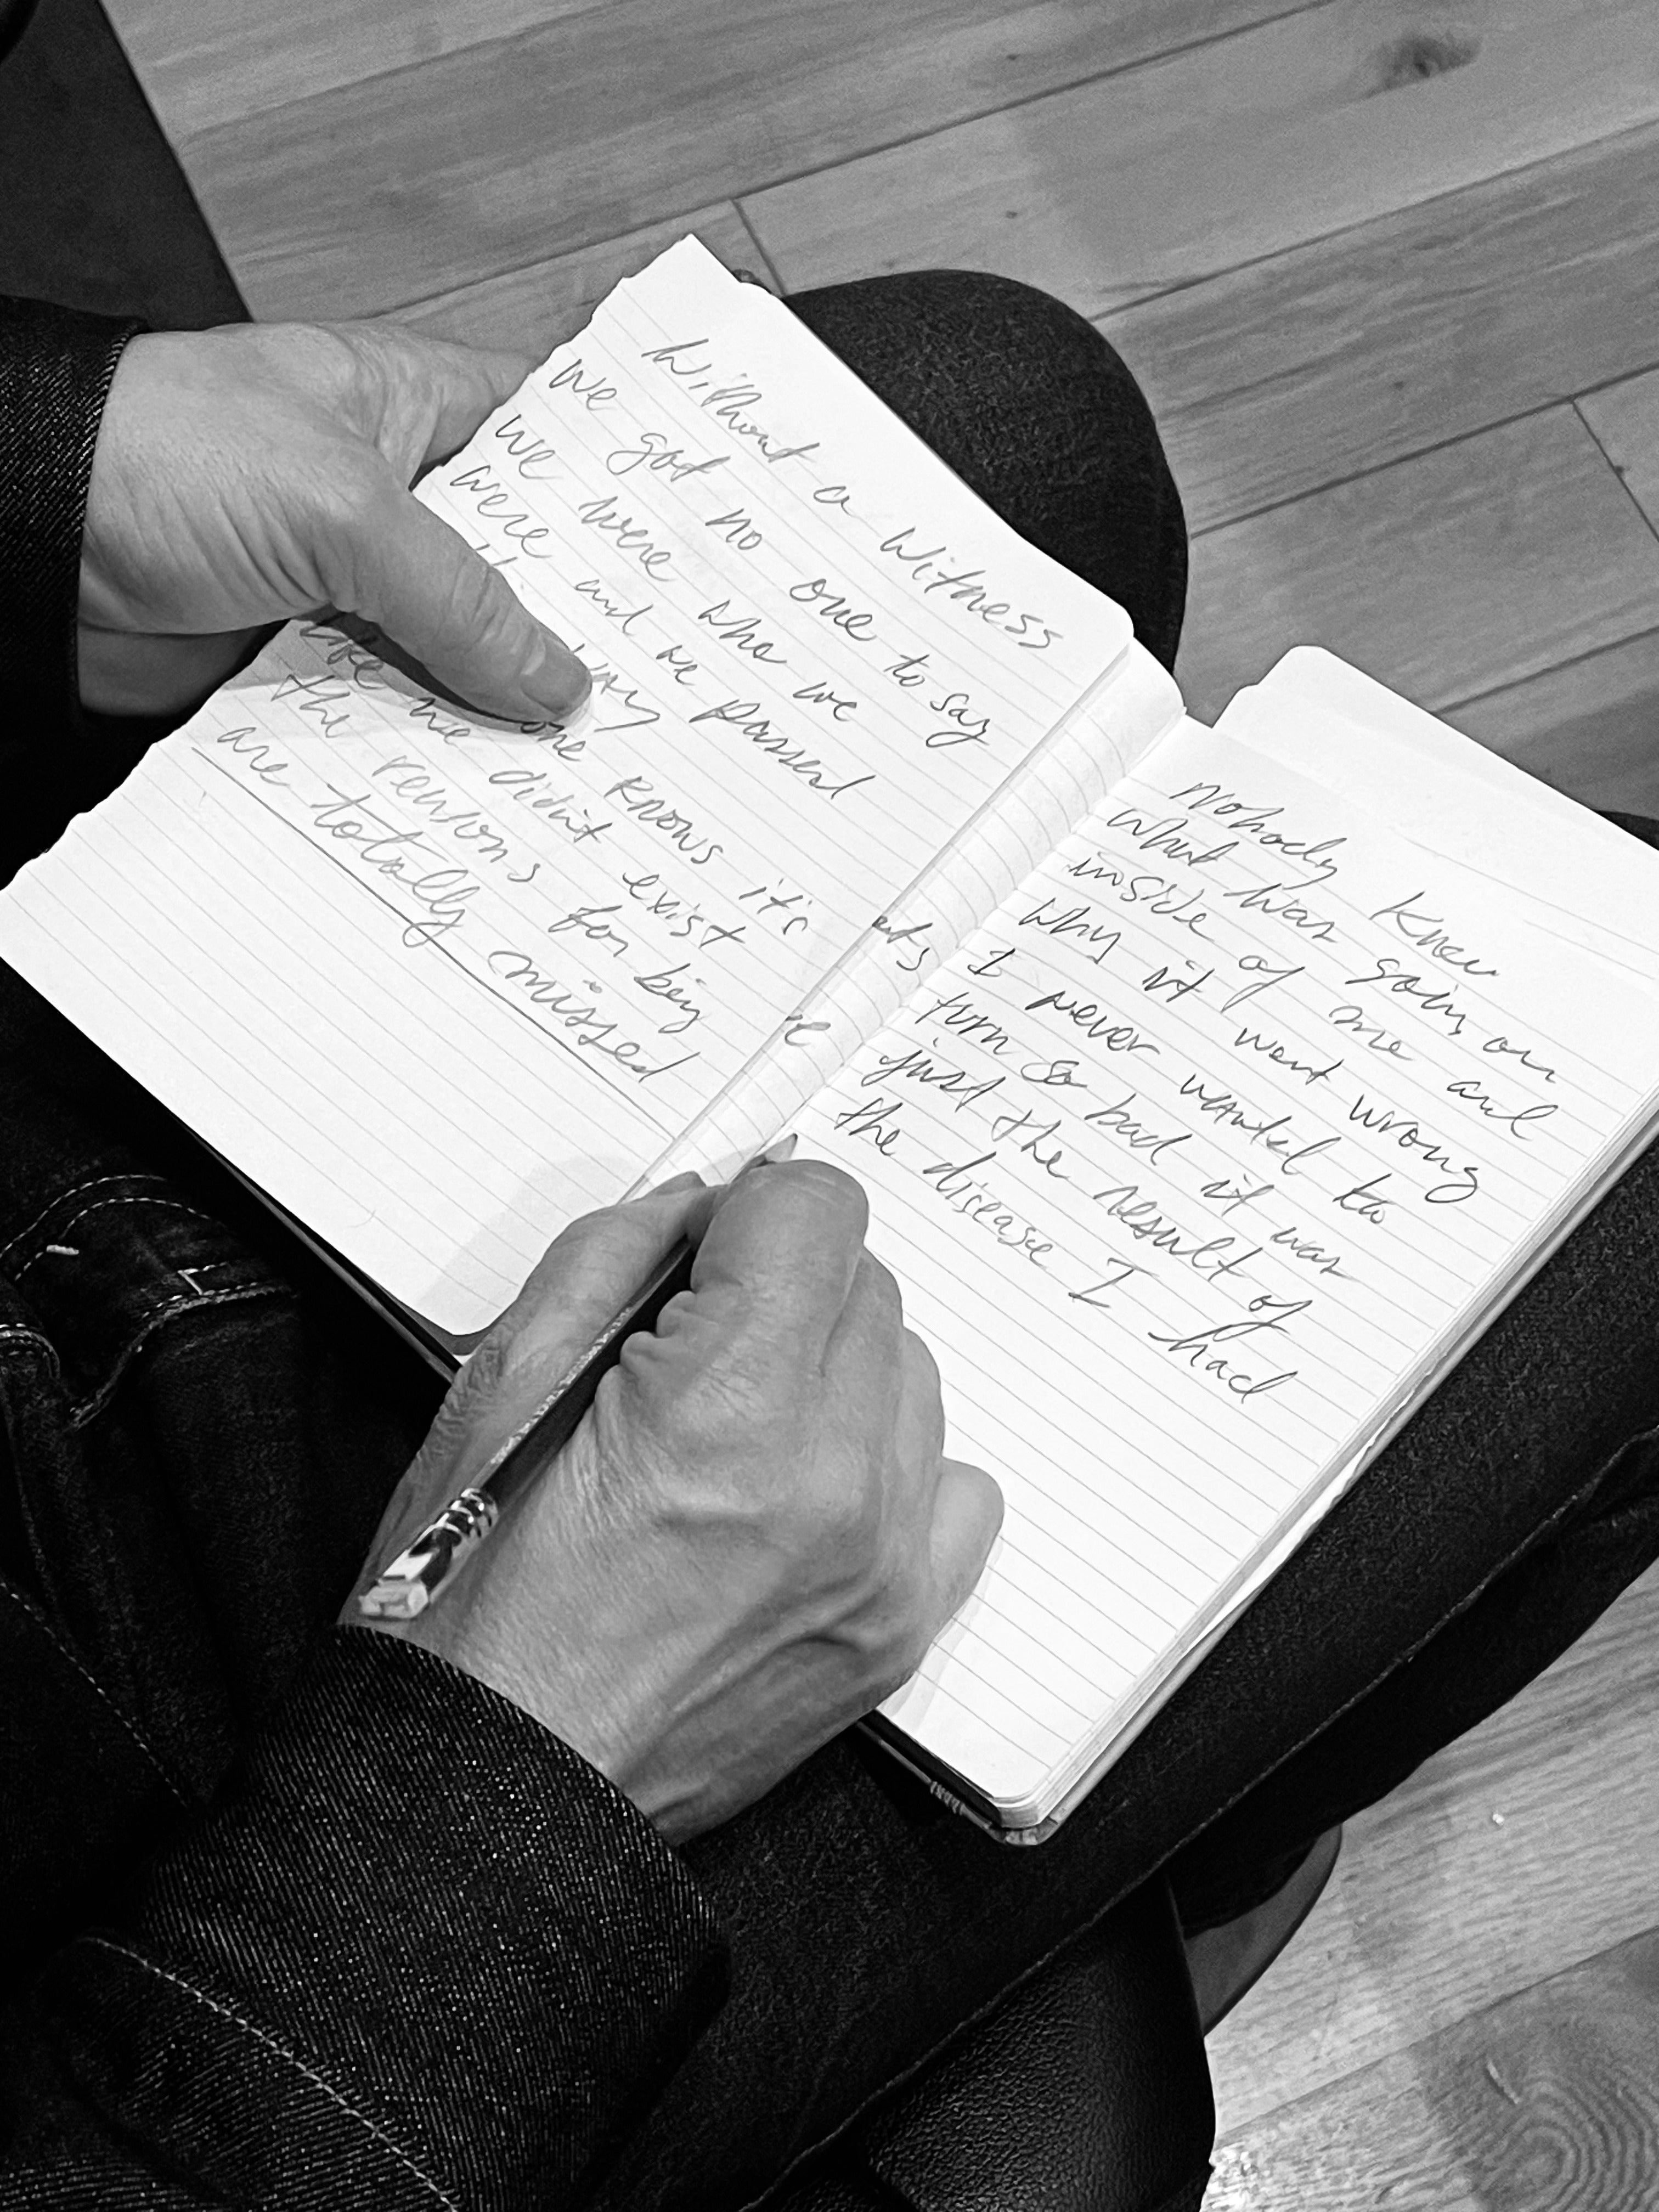 Without a Witness
We got no one to say
We were who we
were and we passed
way
one knows it's
like we didn't exist
the reasons for being
are totally missed
Nobody knew
what was going on
inside of me and
why it went wrong
I never wanted to
turn so bad it was
just the result of
the disease I had